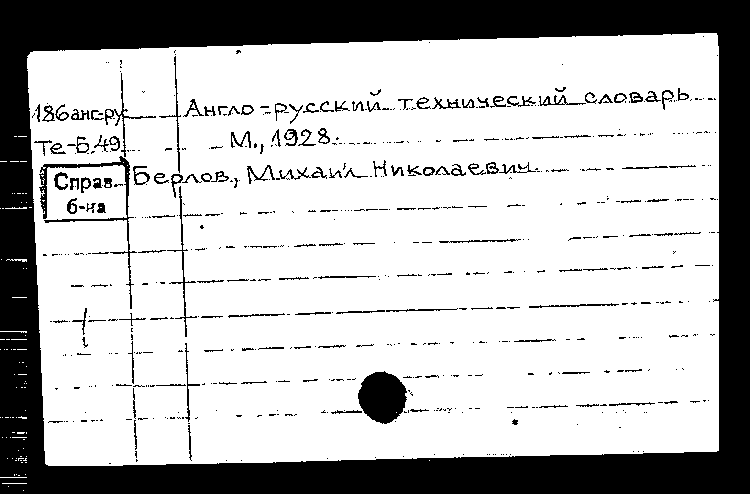 186 анг-рус Англо-русский технический словарь
Те-Б.49 М., 1928.
Справ. Берлов, Михаил Николаевич
б-ка